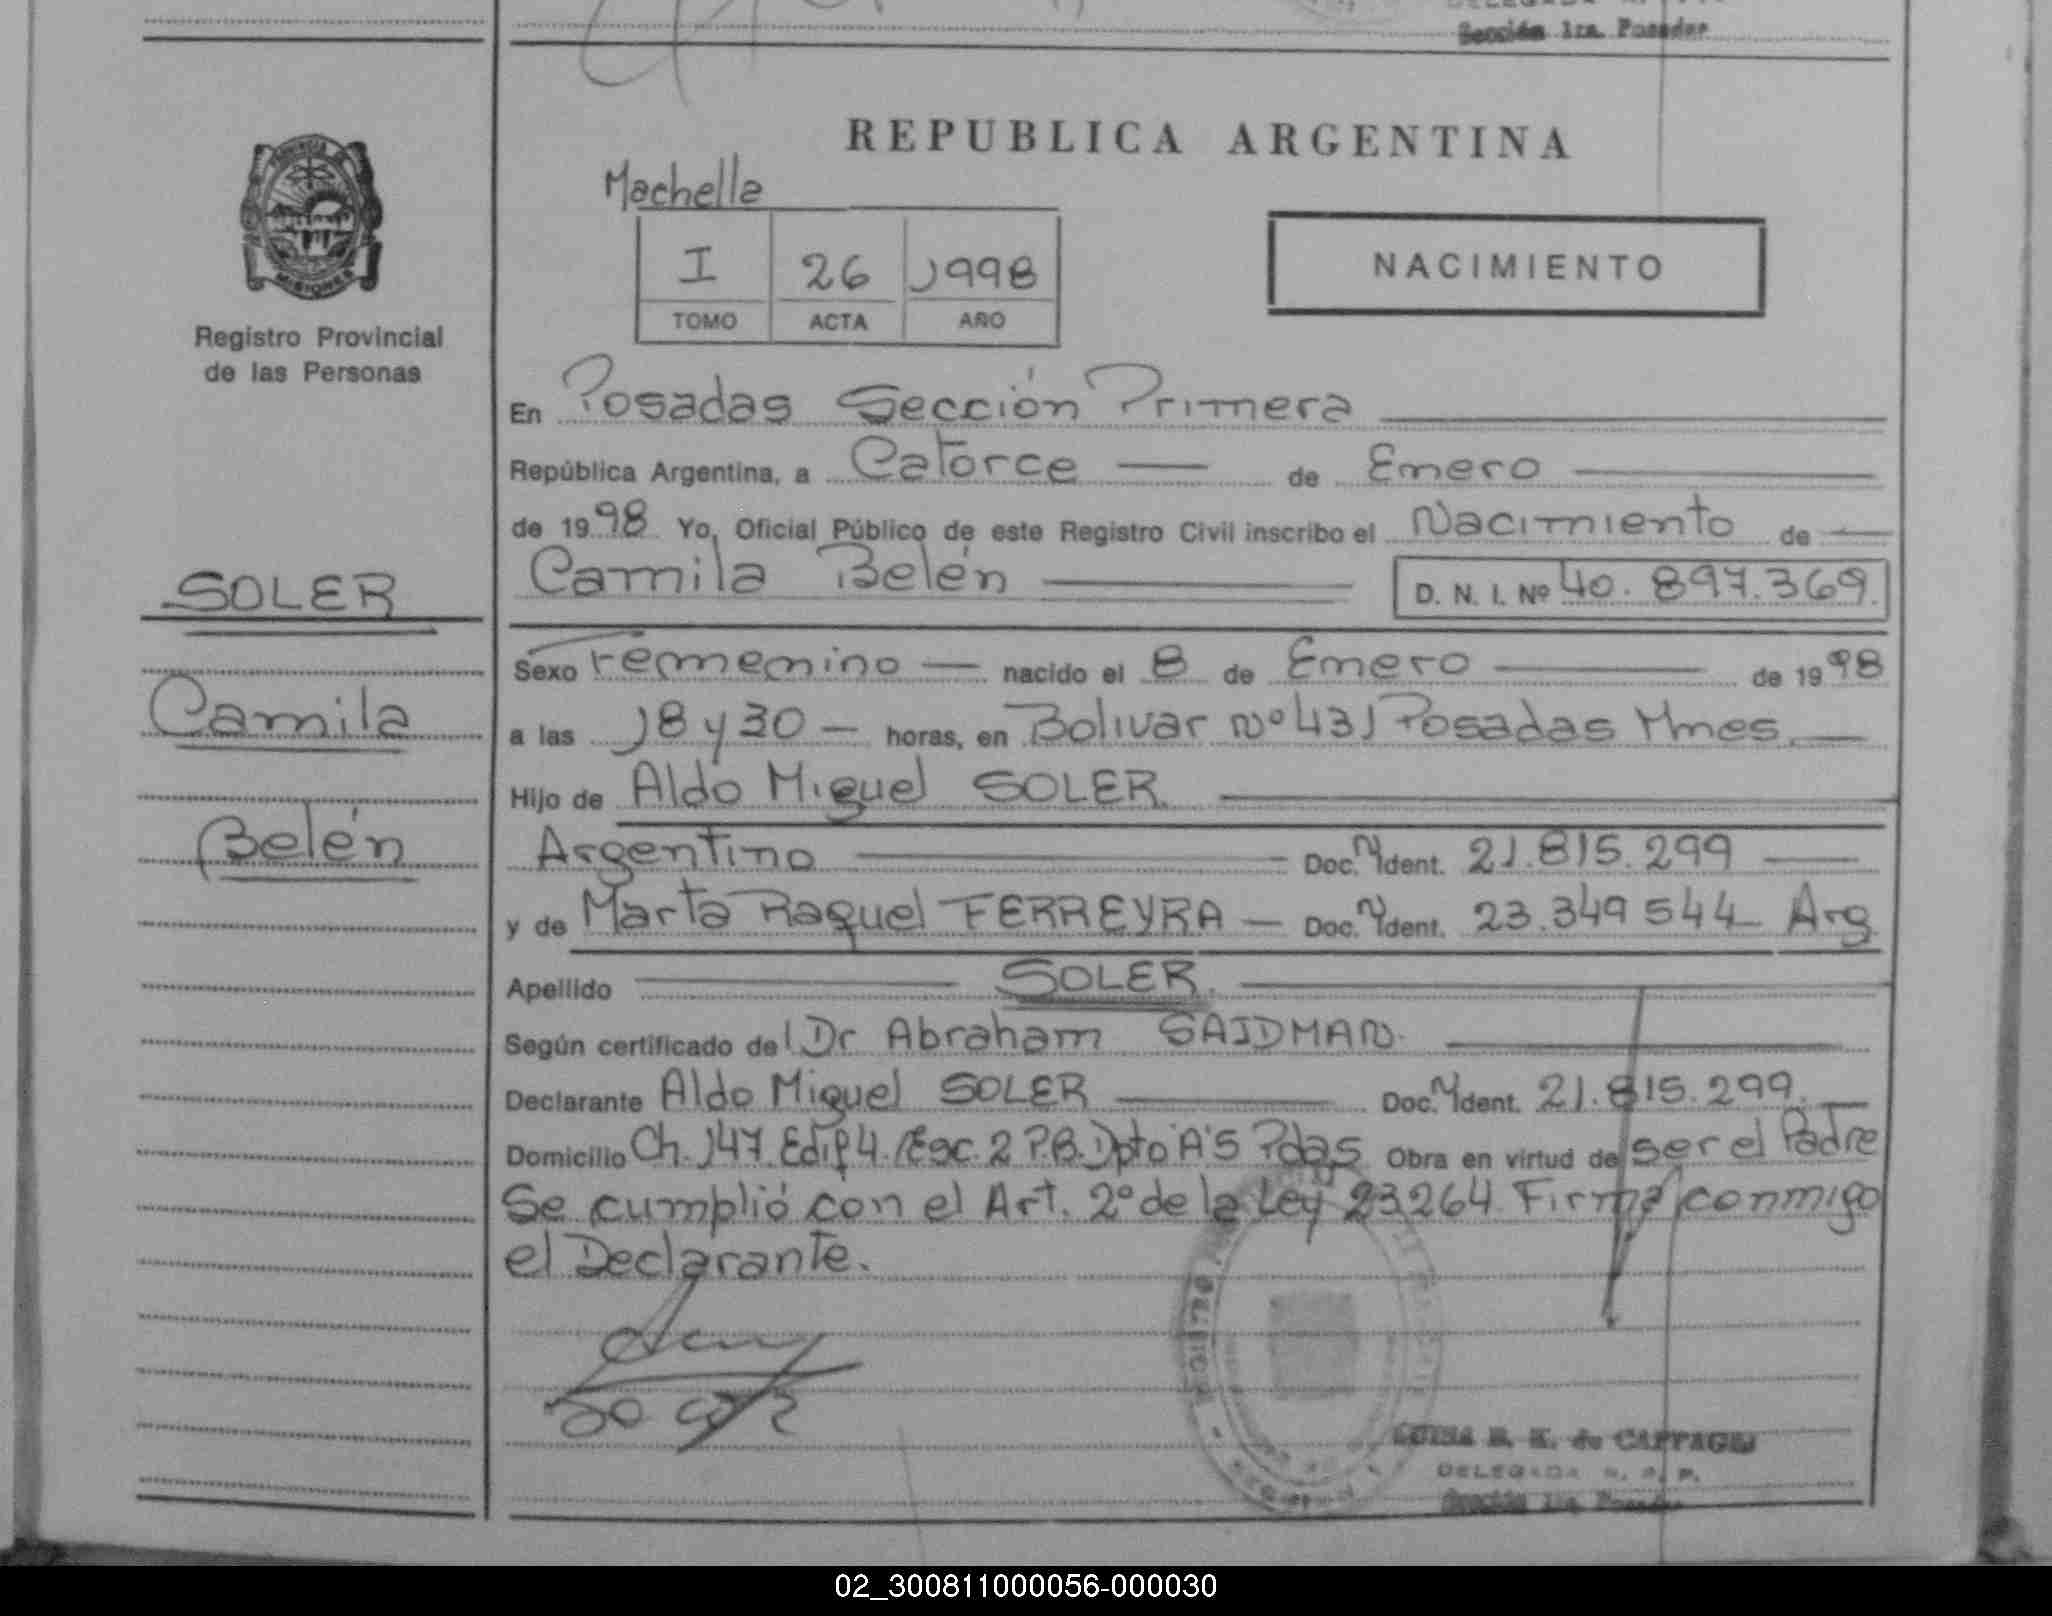 Sección 1ra. Posadas
REPUBLICA ARGENTINA
Machelle
I 26 1998
TOMO ACTA AÑO
NACIMIENTO
PROVINCIA DE
MISIONES
Registro Provincial
de las Personas
En Posadas Sección Primera
República Argentina, a Catorce de Enero
de 1998 Yo, Oficial Público de este Registro Civil inscribo el Nacimiento de
Camila Belén D. N. I. Nº 40.897.369.
SOLER
Camila
Belén
Sexo Femenino nacido el 8 de Enero de 1998
a las 18 y 30 horas, en Bolivar Nº 431 Posadas Mnes.
Hijo de Aldo Miguel SOLER.
Argentino Doc. N Ident. 21.815.299
y de Marta Raquel FERREYRA Doc. N Ident. 23.349544 Arg
Apellido SOLER.
Según certificado del Dr Abraham SAIDMAN.
Declarante Aldo Miguel SOLER Doc. N Ident. 21.815.299.
Domicilio Ch. 147. Edif 4. Esc. 2 P.B. Dpto "A" Pdas Obra en virtud de ser el Padre
Se cumplió con el Art. 2º de la Ley 23264. Firma conmigo
el Declarante.
DELEGADA
Sección 1ra. Posadas
02_300811000056-000030